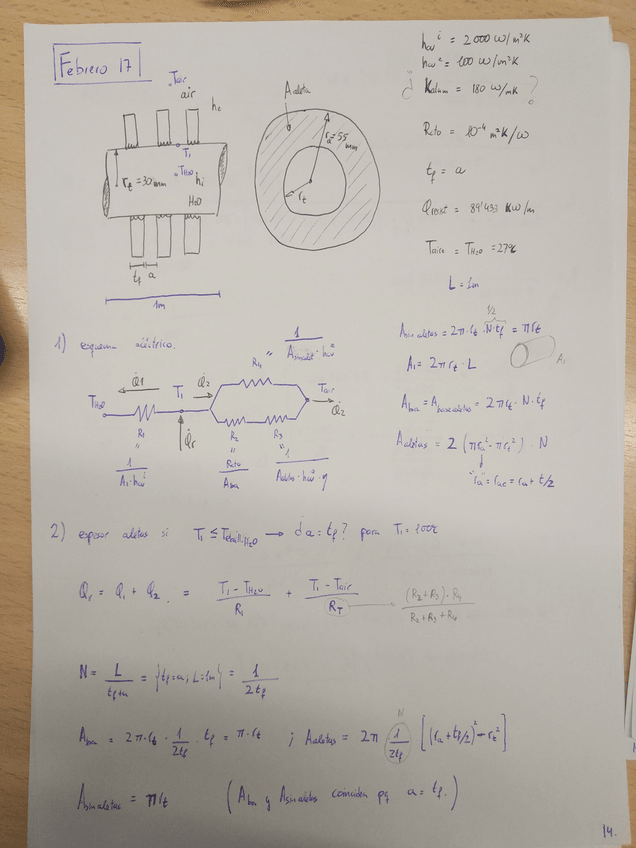 Febrero 17
Tair
air
he
T1
rt = 30mm
TH2O
hi
H2O
tf a
1m
Aaleta
ra = 55 mm
rt
hcvi = 2000 W/m²K
hcve = 100 W/m²K
¿ Kalum = 180 W/mK ?
Rcto = 10⁻⁴ m²K/W
tf = a
Qresist = 89'433 KW/m
Taire = TH2O = 27ºC
L = 1m
1) esquema eléctrico.
TH2O Q1 T1 Q2 R4 Tair Q2
1 / Asinalet · hcve
R1 Qr R2 R3
1 / A1 · hcvi
Rcto / Aba
1 / Aaletas · hcve · η
1/2
Asin aletas = 2π · rt · N · tf = π rt
A1 = 2π rt · L
A1
Aba = Abase aletas = 2π rt · N · tf
Aaletas = 2 (π ra² - π rt²) · N
"ra" = rac = ra + t/2
2) espesor aletas si T1 ≤ Tebull.H2O → ¿a = tf? para T1 = 100ºC
Qr = Q1 + Q2 = (T1 - TH2O) / R1 + (T1 - Tair) / RT
(R2 + R3) · R4 / R2 + R3 + R4
N = L / tf+a = {tf = a; L = 1m} = 1 / 2tf
N
Aba = 2π · rt · 1/2tf · tf = π · rt ; Aaletas = 2π 1/2tf [(ra + tf/2)² - rt²]
Asin aletas = π rt (Aba y Asin aletas coinciden pq a = tf.)
14.